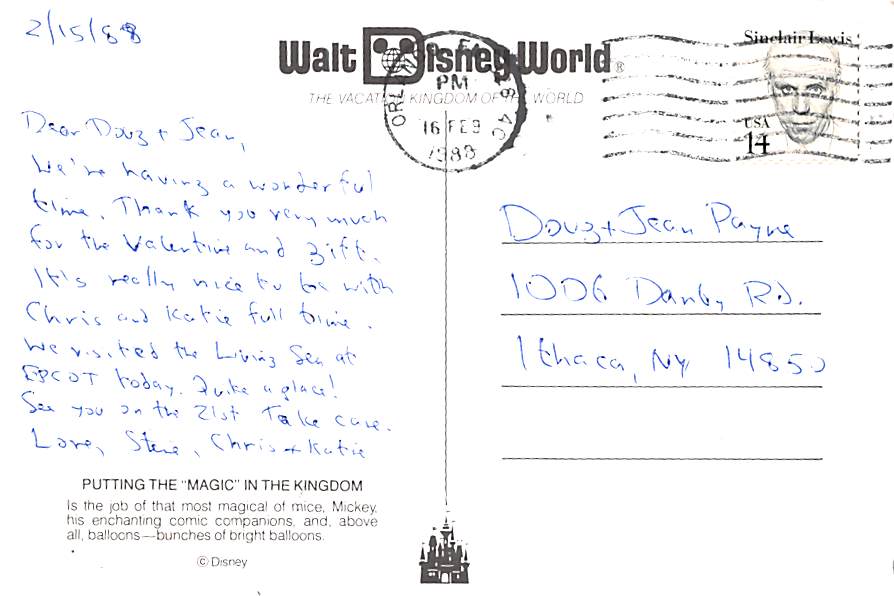 2/15/88
Walt Disney World®
THE VACATION KINGDOM OF THE WORLD
PM
16 FEB
1988
Sinclair Lewis
USA
14
Dear Doug + Jean,
We're having a wonderful
time. Thank you very much
for the Valentine and gift.
It's really nice to be with
Chris and Katie full time.
We visited the Living Sea at
EPCOT today. Quite a place!
See you on the 21st Take care.
Love, Steve, Chris + Katie
Doug + Jean Payne
1006 Danby Rd.
Ithaca, NY 14850
PUTTING THE "MAGIC" IN THE KINGDOM
Is the job of that most magical of mice, Mickey,
his enchanting comic companions, and, above
all, balloons—bunches of bright balloons.
© Disney